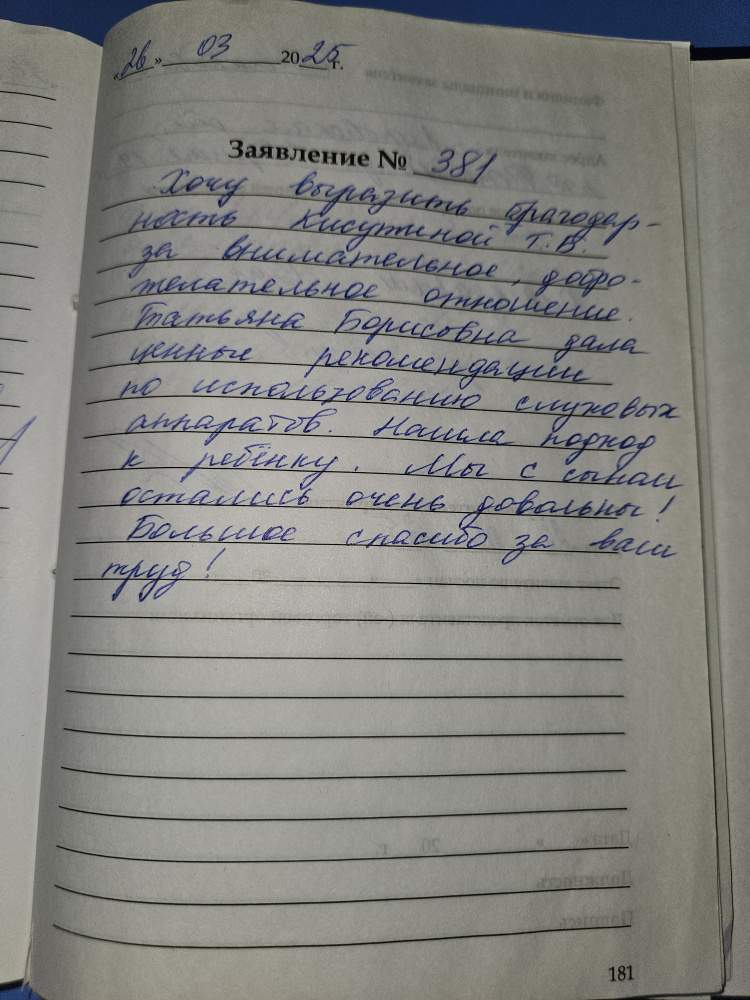 «26» 03 2025 г.
Заявление № 381
Хочу выразить благодар-
ность Кисутиной Т.Б.
за внимательное, добро-
желательное отношение.
Татьяна Борисовна дала
ценные рекомендации
по использованию слуховых
аппаратов. Нашла подход
к ребёнку. Мы с сыном
остались очень довольны!
Большое спасибо за ваш
труд!
181